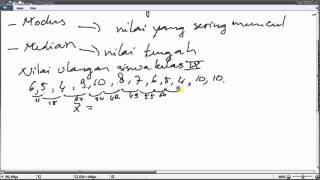 – Modus → nilai yang sering muncul
– Median → nilai tengah
Nilai ulangan siswa kelas IX
6, 5, 4, 9, 10, 8, 7, 6, 5, 4, 10, 10.
11 15 24 34 42 49 55 60
x̄ =